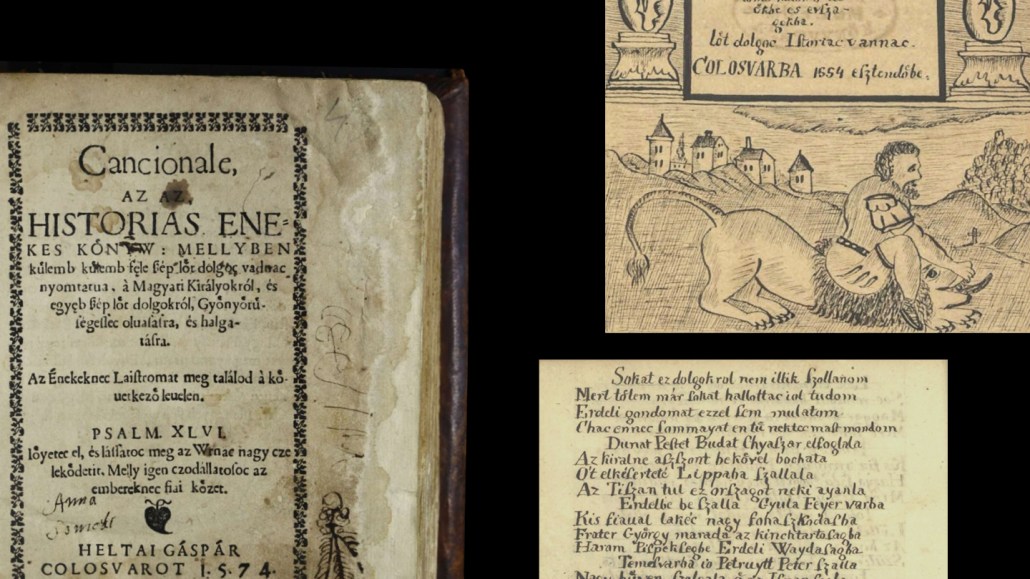 Cancionale,
AZ AZ,
HISTORIAS ENE-
KES KŐNYW: MELLYBEN
kűlemb kűlemb féle ßép lőt dolgoc vadnac
nyomtatua, à Magyari Királyokról, és
egyęb ßép lőt dolgokról, Győnyőrű-
ségesſec oluasásra, és halga-
tásra.
Az Énekeknec Laistromat meg találod à kő-
uetkező leuelen.
PSALM. XLVI.
Iőyetec el, és láſsatoc meg az Wrnac nagy cze
lekődetit. Melly igen czodállatosoc az
embereknec fiai kőzet.
Anna
HELTAI GÁSPÁR
COLOSVAROT 1.5.74.
gekbe.
lőt dolgoc Istoriac vannac.
COLOSVARBA 1554 esztendőbe.
Sokat ez dolgokrol nem illik szollanom
Mert tőlem már sokat hallottac iol tudom
Erdeli gondomat ezzel sem mulatom
Chac ennec sommayat en tű nektec mast mondom
Dunat Pestet Budat Chyaszar elfoglala
Az kiralne aszszont bekővel bochata
Ot elkésérteté Lippaba szallala
Az Tiszan tul ez orszagot neki ayanla
Erdelbe be szalla Gyula Feyer varba
Kis fiaual lakéc nagy fohaszkodasba
Frater György marada az kinchtartosagba
Haram Pispeksegbe Erdeli Waydasagba
Temesvarba io Petruytt Peter szalla